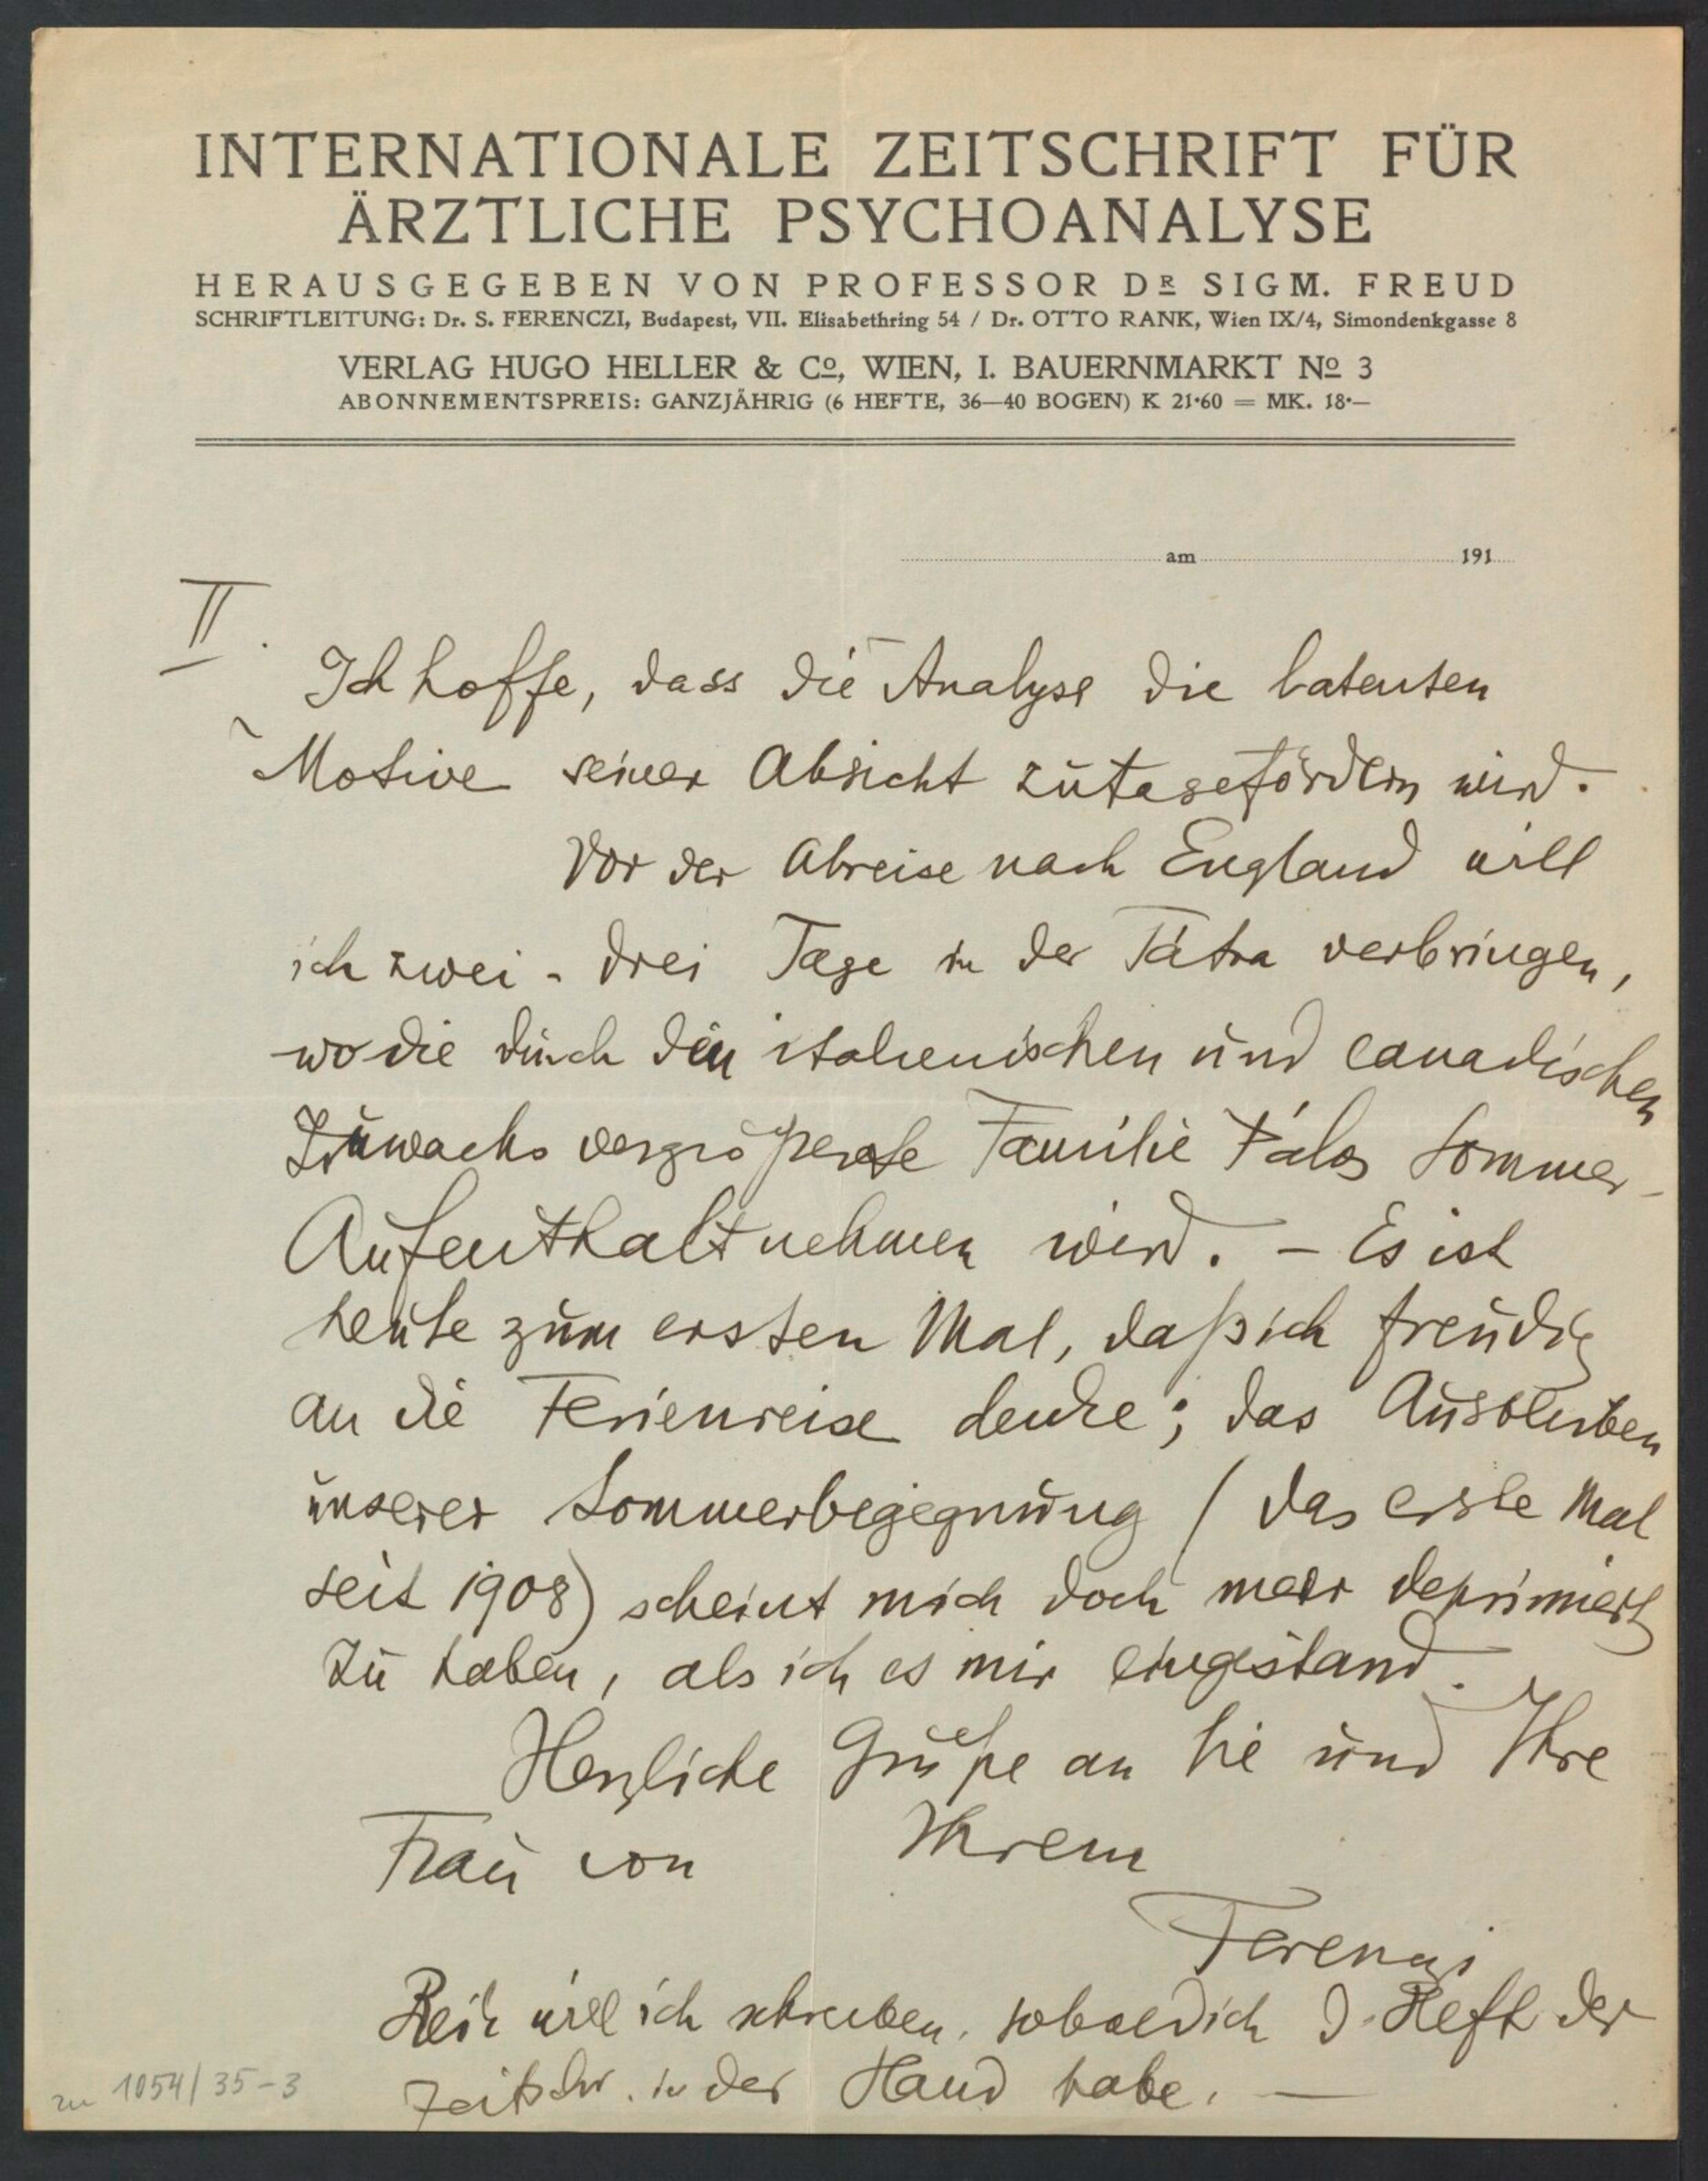 INTERNATIONALE ZEITSCHRIFT FÜR
ÄRZTLICHE PSYCHOANALYSE
HERAUSGEGEBEN VON PROFESSOR DR SIGM. FREUD
SCHRIFTLEITUNG: Dr. S. FERENCZI, Budapest, VII. Elisabethring 54 / Dr. OTTO RANK, Wien IX/4, Simondenkgasse 8
VERLAG HUGO HELLER & Co, WIEN, I. BAUERNMARKT No 3
ABONNEMENTSPREIS: GANZJÄHRIG (6 HEFTE, 36—40 BOGEN) K 21·60 = MK. 18·—
am 191
II.
Ich hoffe, dass die Analyse die latenten
Motive seiner Absicht zutagefördern wird.
Vor der Abreise nach England will
ich zwei - drei Tage in der Tátra verbringen,
wo die durch den italienischen und canadischen
Zuwachs vergrößerte Familie Pálos Sommer-
Aufenthalt nehmen wird. – Es ist
heute zum ersten Mal, daß ich freudig
an die Ferienreise denke; das Ausbleiben
unserer Sommerbegegnung (das erste Mal
seit 1908) scheint mich doch mehr deprimiert
zu haben, als ich es mir eingestand.
Herzliche Grüße an Sie und Ihre
Frau von Ihrem
Ferenczi
Reik will ich schreiben, sobald ich d. Heft der
Zeitschr. in der Hand habe. —
zu 1054/35-3